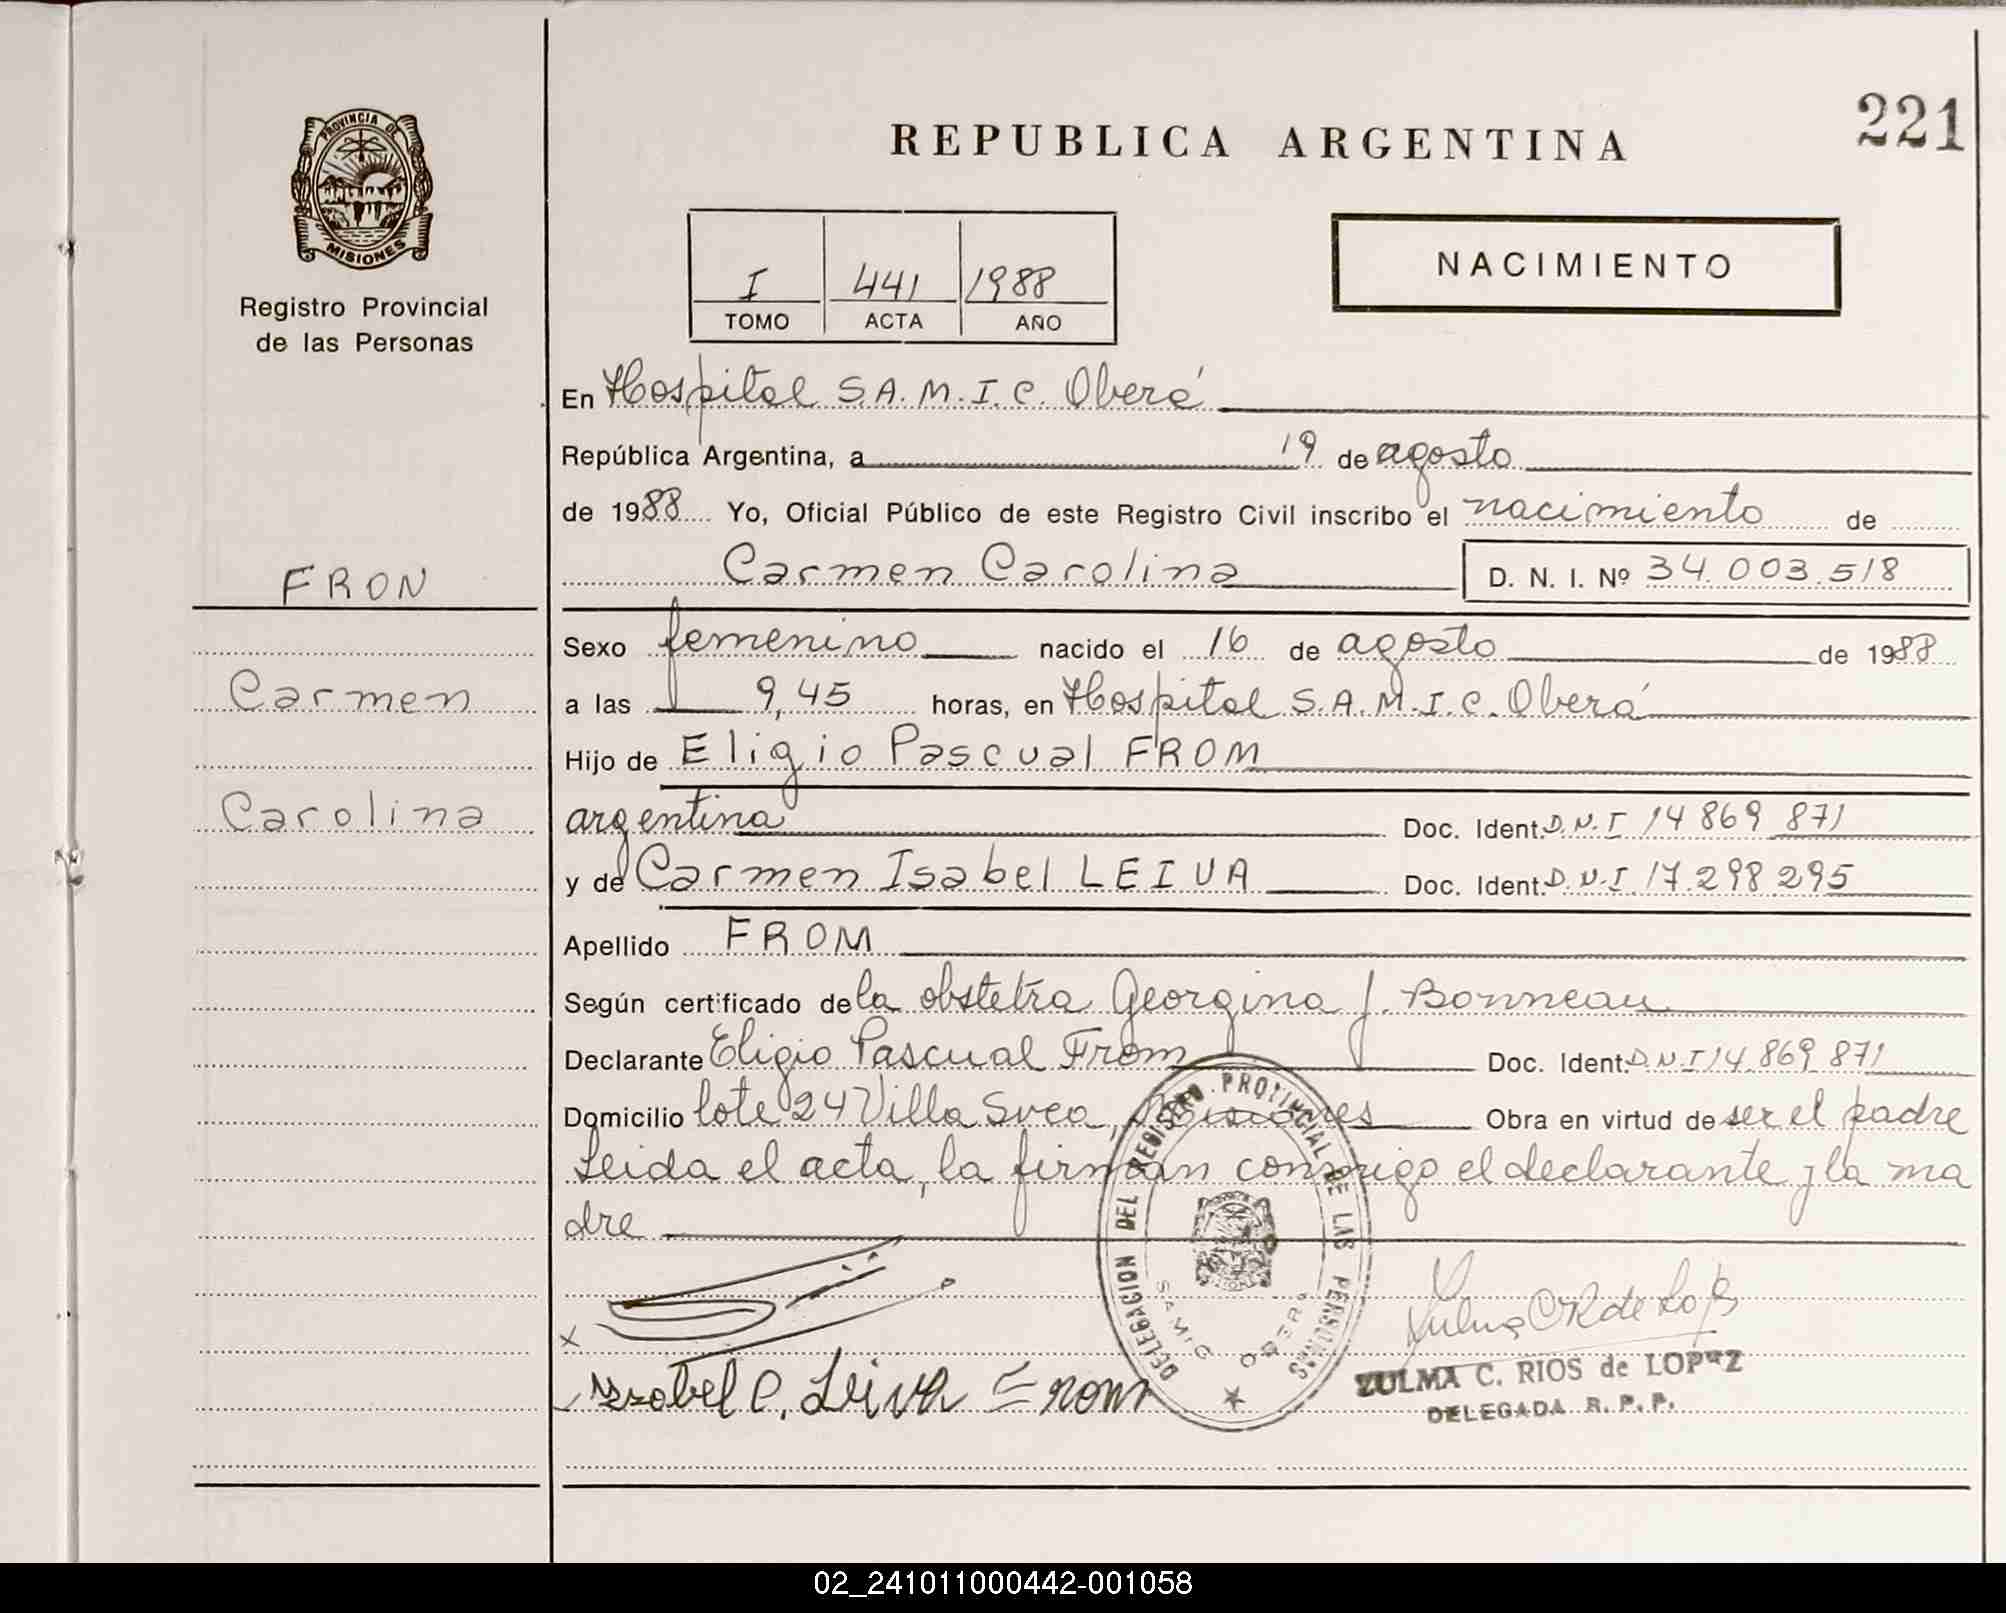 221
PROVINCIA DE
MISIONES
Registro Provincial
de las Personas
REPUBLICA ARGENTINA
I 441 1988
TOMO ACTA AÑO
NACIMIENTO
En Hospital S.A.M.I.C. Oberá
República Argentina, a 19 de agosto
de 1988 Yo, Oficial Público de este Registro Civil inscribo el nacimiento de
Carmen Carolina D. N. I. Nº 34.003.518
FRON
Carmen
Carolina
Sexo femenino nacido el 16 de agosto de 1988
a las 9,45 horas, en Hospital S.A.M.I.C. Oberá
Hijo de Eligio Pascual FROM
argentina Doc. Ident. D.N.I 14 869 871
y de Carmen Isabel LEIVA Doc. Ident. D.N.I. 17.298 295
Apellido FROM
Según certificado de la obstetra Georgina J. Bonneau
Declarante Eligio Pascual From Doc. Ident. D.N.I 14.869 871
Domicilio lote 24 Villa Svea, Misiones Obra en virtud de ser el padre
Leida el acta, la firman conmigo el declarante y la ma
dre
DELEGACION DEL REGISTRO PROVINCIAL DE LAS PERSONAS
SAMIC OBERA
x
Yzobel C. Leiva From
Zulma C R de López
ZULMA C. RIOS de LOPEZ
DELEGADA R. P. P.
02_241011000442-001058